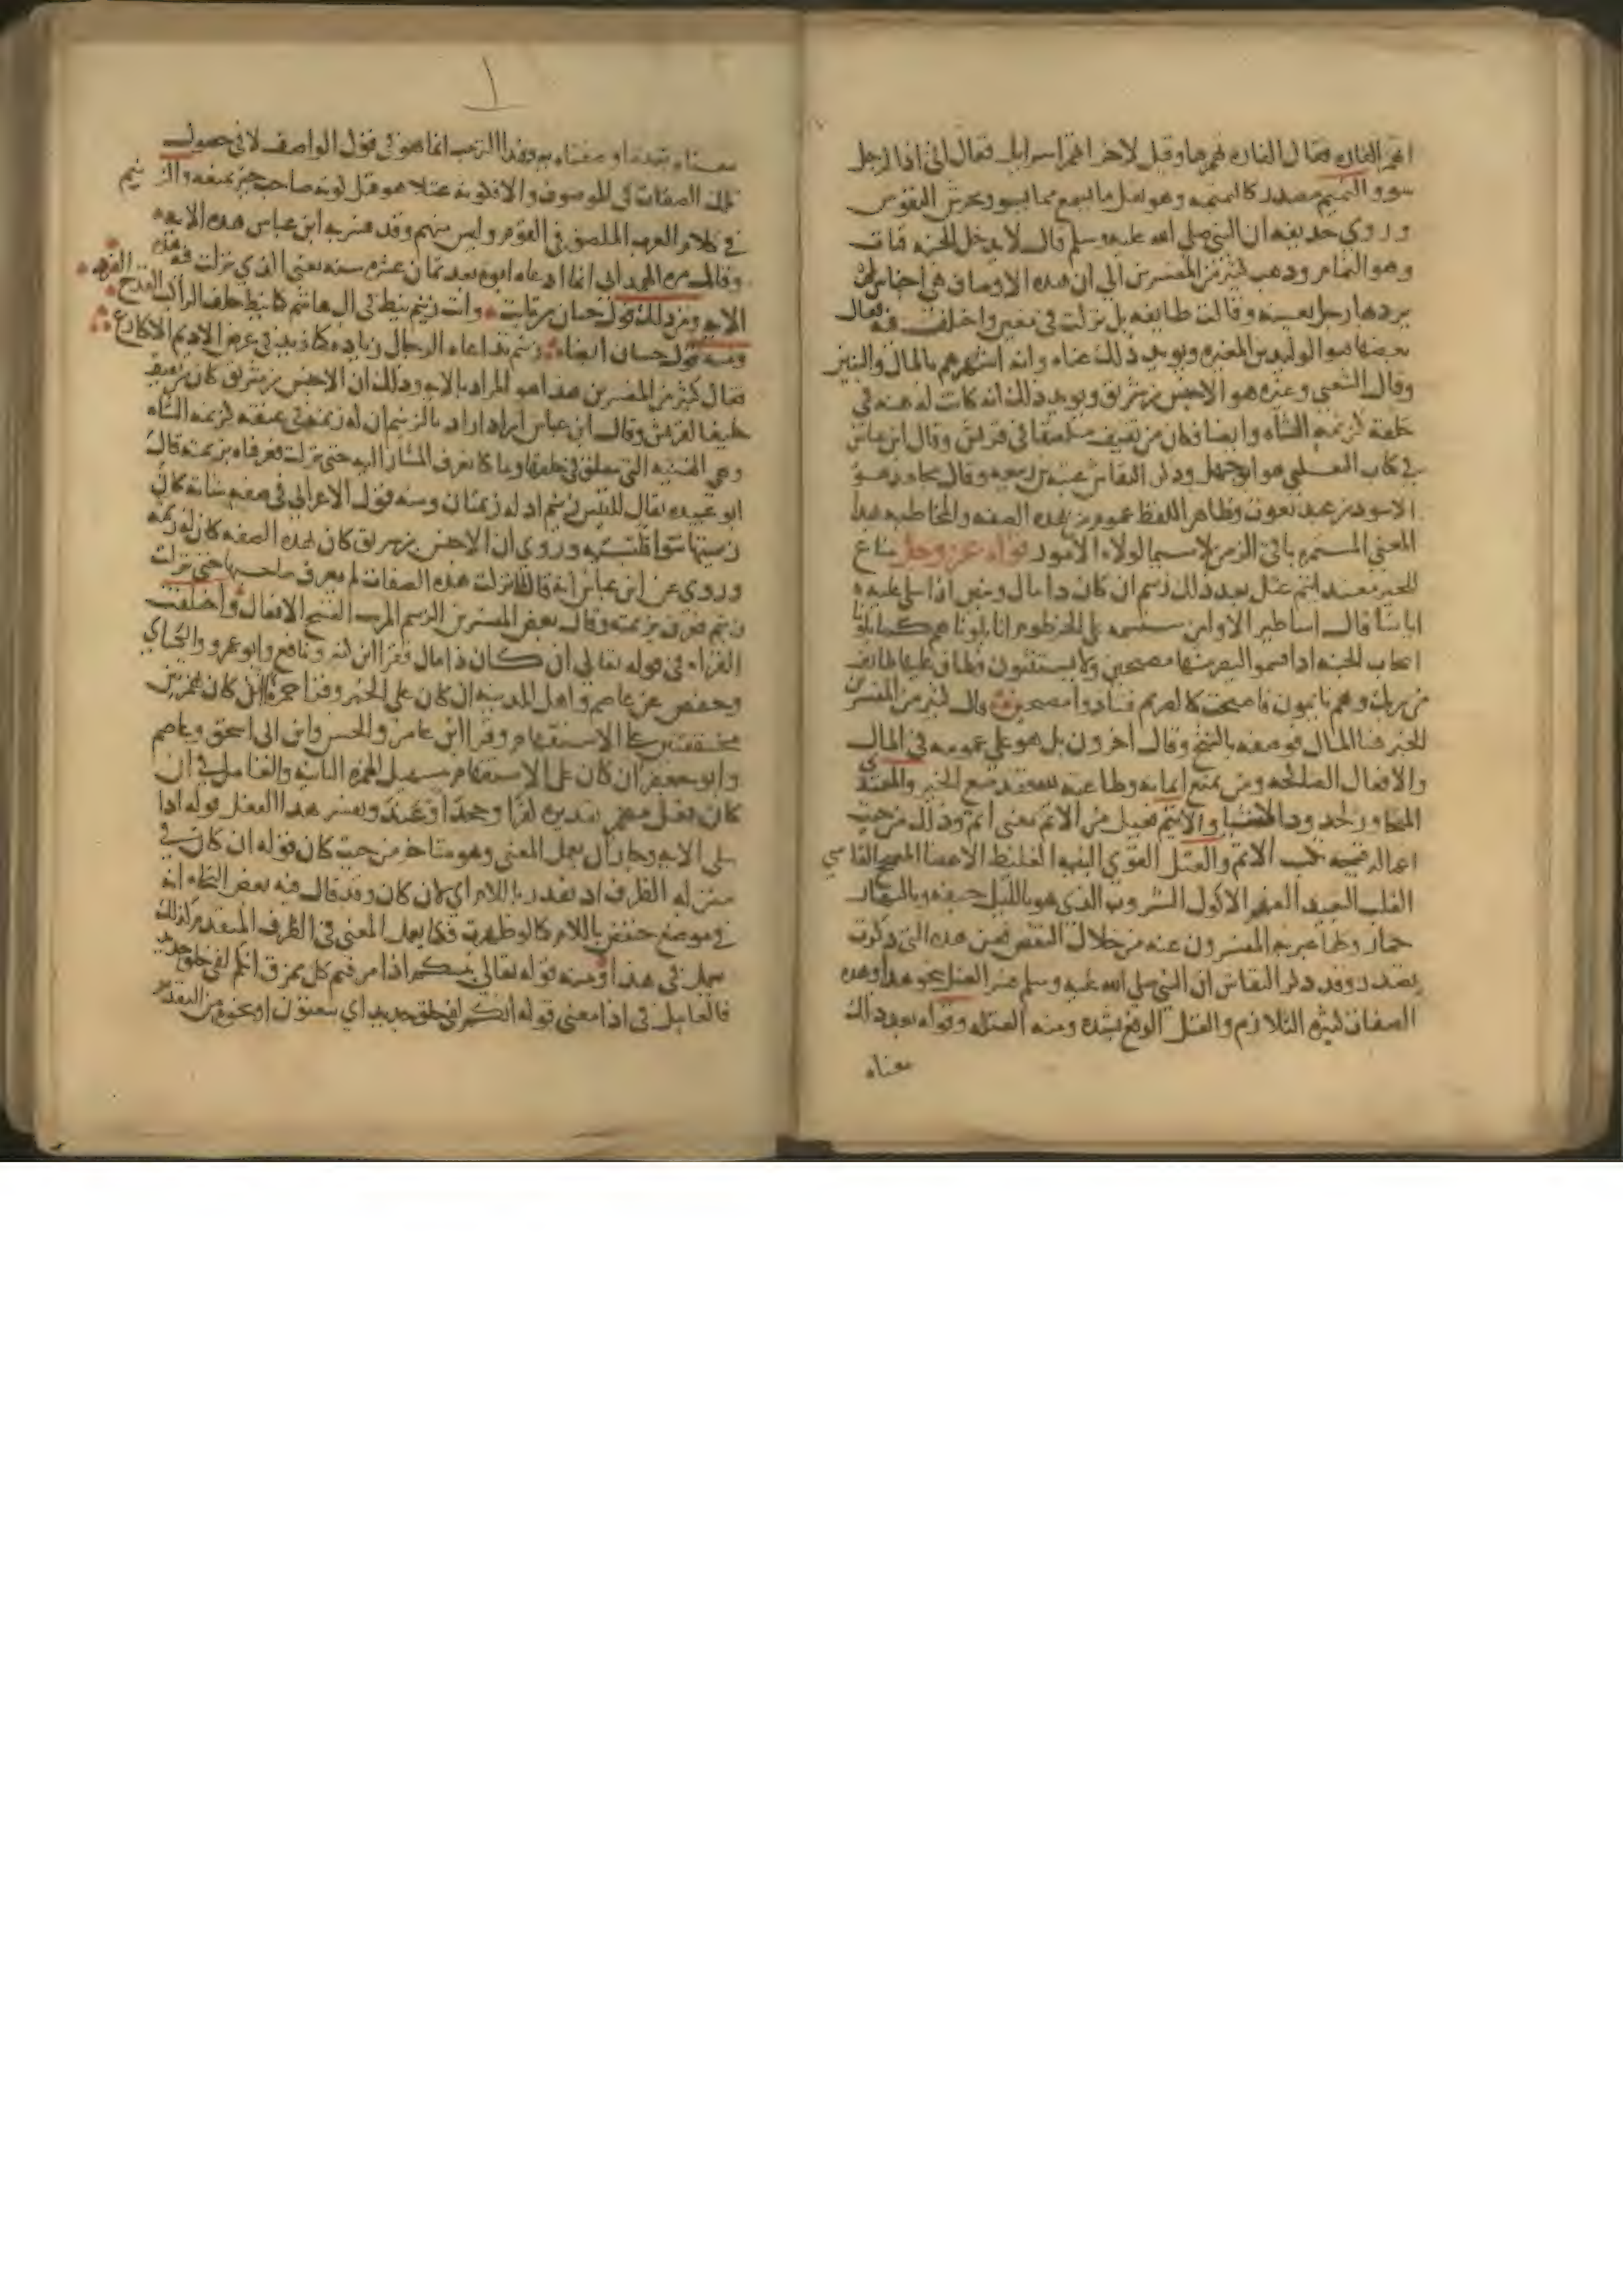 اتهمز الفاره فقال الفاره تهمزها وقيل لاخر اتهمز اسرايل فقال اني اذا لرجل
سوو النميم مصدر كالنميمه وهو نقل ما يسمع مما يسو ويحرش النفوس
وروي حذيفه ان النبي صلى الله عليه وسلم قال لا يدخل الجنه قتات
وهو النمام وذهب كثير من المفسرين الي ان هذه الاوصاف هي اجناس لم
يرد بها رجل بعينه وقالت طايفه بل نزلت في معين واختلف فيه فقال
بعضها هو الوليد بن المغيره ويويد ذلك غناه وانه اشهرهم بالمال والبنين
وقال الشعبي وغيره هو الاخنس بن شريق ويويد ذلك انه كانت له هنه في
حلقه كزنمه الشاه وايضا فكان من ثقيف ملصقا في قريش وقال ابن عباس
في كتاب الثعلبي هو ابو جهل وذكر النقاش عتبه بن ربيعه وقال مجاهد هو
الاسود بن عبد يغوث وظاهر اللفظ عموم من بهذه الصفه والمخاطبه بهذا
المعني المستمره باقي الزمن لا سيما لولاه الامور قوله عز وجل مناع
للخير معتد اثيم عتل بعد ذلك زنيم ان كان ذا مال وبنين اذا تتلى عليه
اياتنا قال اساطير الاولين سنسمه على الخرطوم انا بلوناهم كما بلونا
اصحاب الجنه اذ اقسموا ليصرمنها مصبحين ولا يستثنون فطاف عليها طايف
من ربك وهم نايمون فاصبحت كالصريم فتنادوا مصبحين قال كثير من المفسرين
الخير هنا المال فوصفه بالشح وقال اخرون بل هو على عمومه في المال
والافعال الصالحه ومن يمنع ايمانه وطاعته فقد منع الخير والمعتدي
المتجاوز لحدود الاشيا والاثيم فعيل من الاثم بمعني اثم وذلك من حيث
اعماله قبيحه تكسب الاثم والعتل القوي البنيه الغليظ الاعضا المصحح القاسي
القلب البعيد الفهم الاكول الشروب الذي هو بالليل جيفه وبالنهار
حمار وكلما عبر به المفسرون عنه من خلال النقص فعن هذه التي ذكرت
يصدر وقد ذكر النقاش ان النبي صلى الله عليه وسلم فسر العتل بنحو هذا وهذه
الصفات كثيره التلازم والعتل الدفع بشده ومنه العتله وقوله بعد ذلك
معناه
معناه بعدما وصفناه به وهذا الترتيب انما هو في قول الواصف لا في حصول
تلك الصفات في الموصوف والا فكونه عتلا هو قبل كونه صاحب خير يمنعه والزنيم
في كلام العرب الملصق في القوم وليس منهم وقد فسر به ابن عباس هذه الايه
وقال مره الهمداني انما ادعاه ابوه بعد ثمان عشره سنه يعني الذي نزلت فيه هذه
الايه ومن ذلك قول حسان بن ثابت وانت زنيم نيط في ال هاشم كما نيط خلف الراكب القدح الفرد
ومنه قول حسان ايضا زنيم تداعاه الرجال زياده كما زيد في عرض الاديم الاكارع
فقال كثير من المفسرين هذا هو المراد بالايه وذلك ان الاخنس بن شريق كان من ثقيف
حليفا لقريش وقال ابن عباس ايضا اراد بالزنيم ان له زنمه في عنقه كزنمه الشاه
وهي الهنيه التي تعلق في حلقها وما كنا نعرف المشار اليه حتى نزلت فعرفناه بزنمته قال
ابو عبيده يقال للتيس زنيم اذ له زنمتان ومنه قول الاعرابي في صفه شاته كان
زنمتيها تتوا قلنسيه وروي ان الاخنس بن شريق كان بهذه الصفه كان له زنمه
وروي عن ابن عباس انه قال لما نزلت هذه الصفات لم يعرف صاحبها حتى نزلت
زنيم فعرف بزنمته وقال بعض المفسرين الزنيم المريب القبيح الافعال واختلفت
القراء في قوله تعالى ان كان ذا مال فقرا ابن كثير ونافع وابو عمرو والكسائي
وحفص عن عاصم واهل المدينه ان كان على الخبر وقرا حمزه اان كان بهمزتين
محققتين على الاستفهام وقرا ابن عامر والحسن وابن ابي اسحق وعاصم
وابو جعفر ان كان على الاستفهام بتسهيل الهمزه الثانيه والعامل في ان
كان فعل مضمر تقديره كفر وجحد او عند ويفسر هذا الفعل قوله اذا
تتلى الايه وجاز ان يعمل المعني وهو متاخر من حيث كان قوله ان كان في
منزله الظرف اذ يقدر باللام اي لان كان وقد قال فيه بعض النحاه انه
في موضع خفض باللام كما لو ظهرت فكما يعمل المعني في الظرف المتقدم كذلك
يعمل في هذا ومنه قوله تعالى ينبئكم اذا مزقتم كل ممزق انكم لفي خلق جديد
فالعامل في اذا معني قوله انكم لفي خلق جديد اي تبعثون او نحوه من التقدير